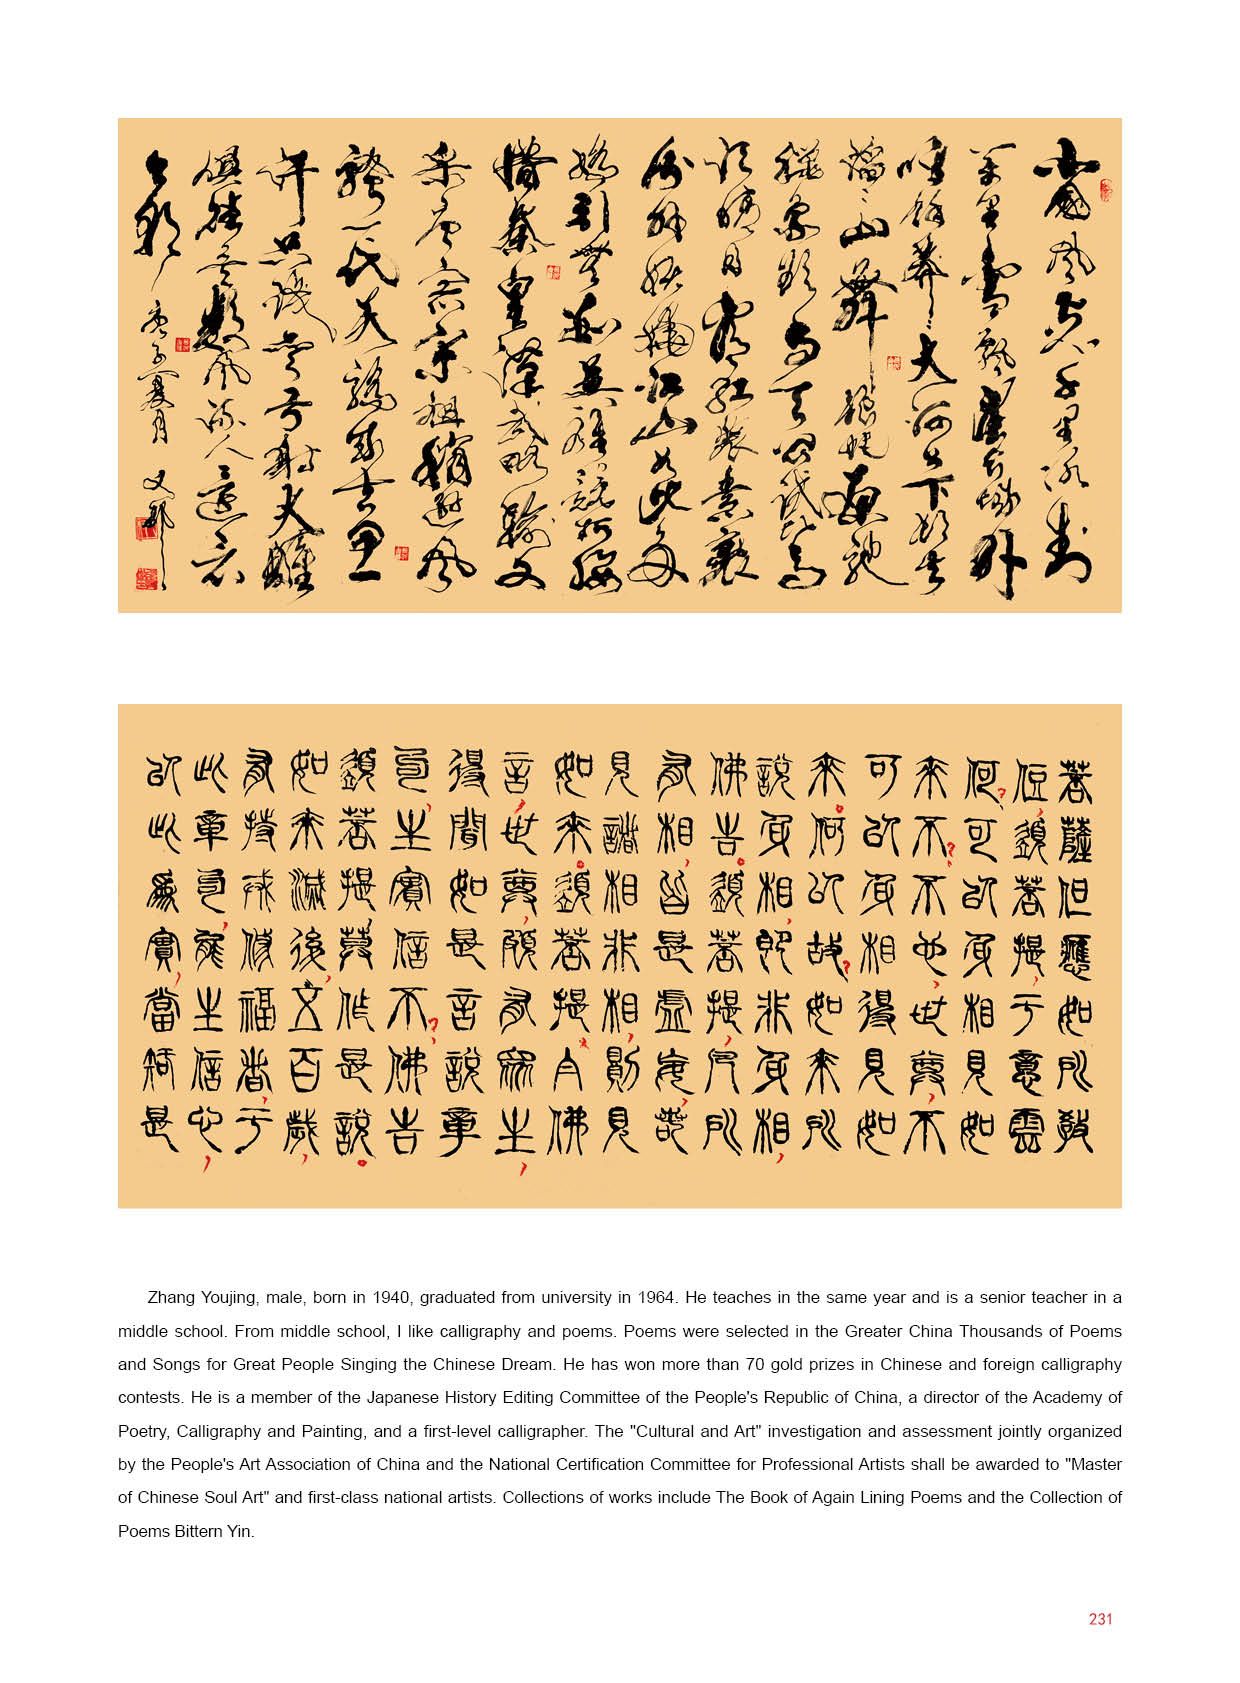 北國風光千里冰封
萬里雪飄望長城外
惟餘莽莽大河上下頓失
滔滔山舞銀蛇原馳
蠟象欲與天公試比高
須晴日看紅裝素裹
分外妖嬈江山如此多
嬌引無數英雄競折腰
惜秦皇漢武略輸文
采唐宗宋祖稍遜風
騷一代天驕成吉思
汗只識彎弓射大雕
俱往矣數風流人還看
今朝
庚子夏月
菩薩但應如所教
住，須菩提，于意雲
何？可以身相見如
來不？不也，世尊，不
可以身相得見如
來。何以故？如來所
說身相，即非身相，
佛告。須菩提，凡所
有相，皆是虛妄，若
見諸相非相，則見
如來。須菩提白佛
言，世尊，頗有眾生，
得聞如是言說章
句，生實信不？佛告
須菩提莫作是說。
如來滅後，五百歲，
有持戒修福者，于
此章句，能生信心，
以此為實，當知是
Zhang Youjing, male, born in 1940, graduated from university in 1964. He teaches in the same year and is a senior teacher in a
middle school. From middle school, I like calligraphy and poems. Poems were selected in the Greater China Thousands of Poems
and Songs for Great People Singing the Chinese Dream. He has won more than 70 gold prizes in Chinese and foreign calligraphy
contests. He is a member of the Japanese History Editing Committee of the People's Republic of China, a director of the Academy of
Poetry, Calligraphy and Painting, and a first-level calligrapher. The "Cultural and Art" investigation and assessment jointly organized
by the People's Art Association of China and the National Certification Committee for Professional Artists shall be awarded to "Master
of Chinese Soul Art" and first-class national artists. Collections of works include The Book of Again Lining Poems and the Collection of
Poems Bittern Yin.
231